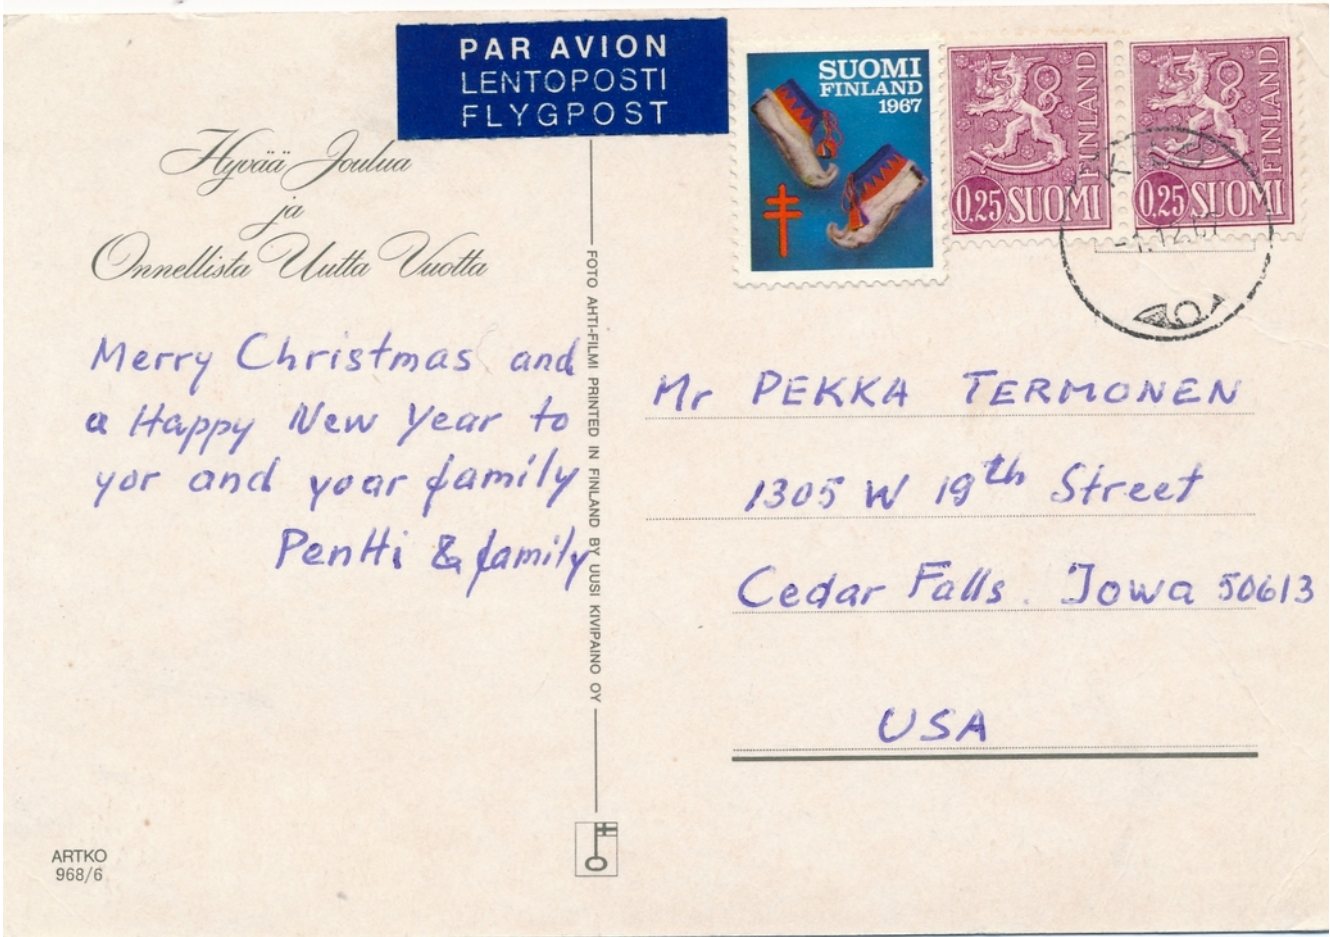 PAR AVION
LENTOPOSTI
FLYGPOST
SUOMI
FINLAND
1967
FINLAND
0,25 SUOMI
FINLAND
0,25 SUOMI
Hyvää Joulua
ja
Onnellista Uutta Vuotta
Merry Christmas and
a Happy New Year to
yor and your family
Pentti & family
FOTO AHTI-FILMI PRINTED IN FINLAND BY UUSI KIVIPAINO OY
Mr PEKKA TERMONEN
1305 W 19th Street
Cedar Falls. Iowa 50613
USA
ARTKO
968/6